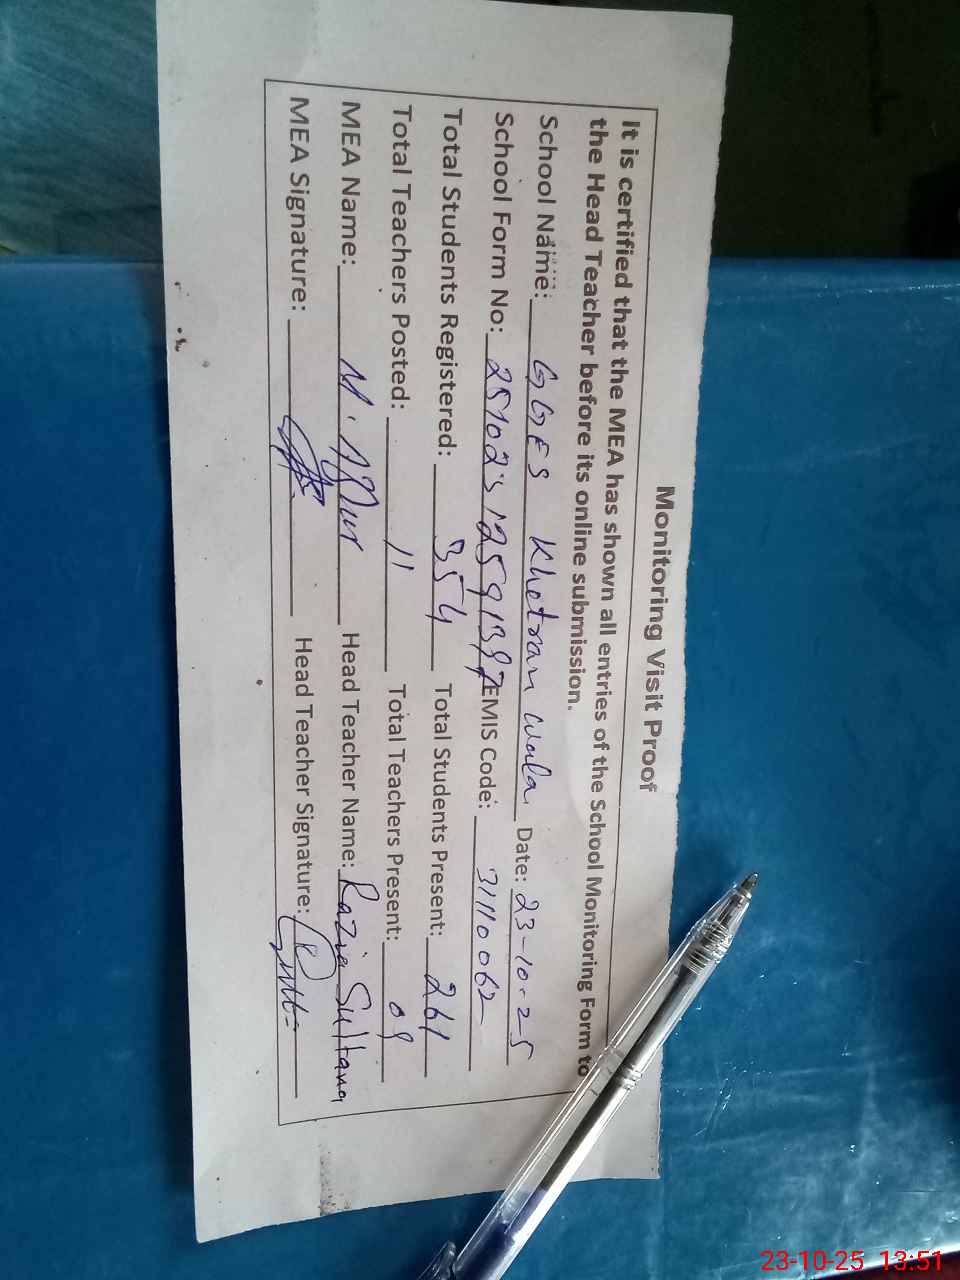 Monitoring Visit Proof
It is certified that the MEA has shown all entries of the School Monitoring Form to
the Head Teacher before its online submission.
School Name: GGES Khetran wala Date: 23-10-25
School Form No: EMIS Code: 31110062
Total Students Registered: 354 Total Students Present: 261
Total Teachers Posted: 11 Total Teachers Present: 09
MEA Name: M. Head Teacher Name: Razia Sultana
MEA Signature: Head Teacher Signature:
23-10-25 13:51